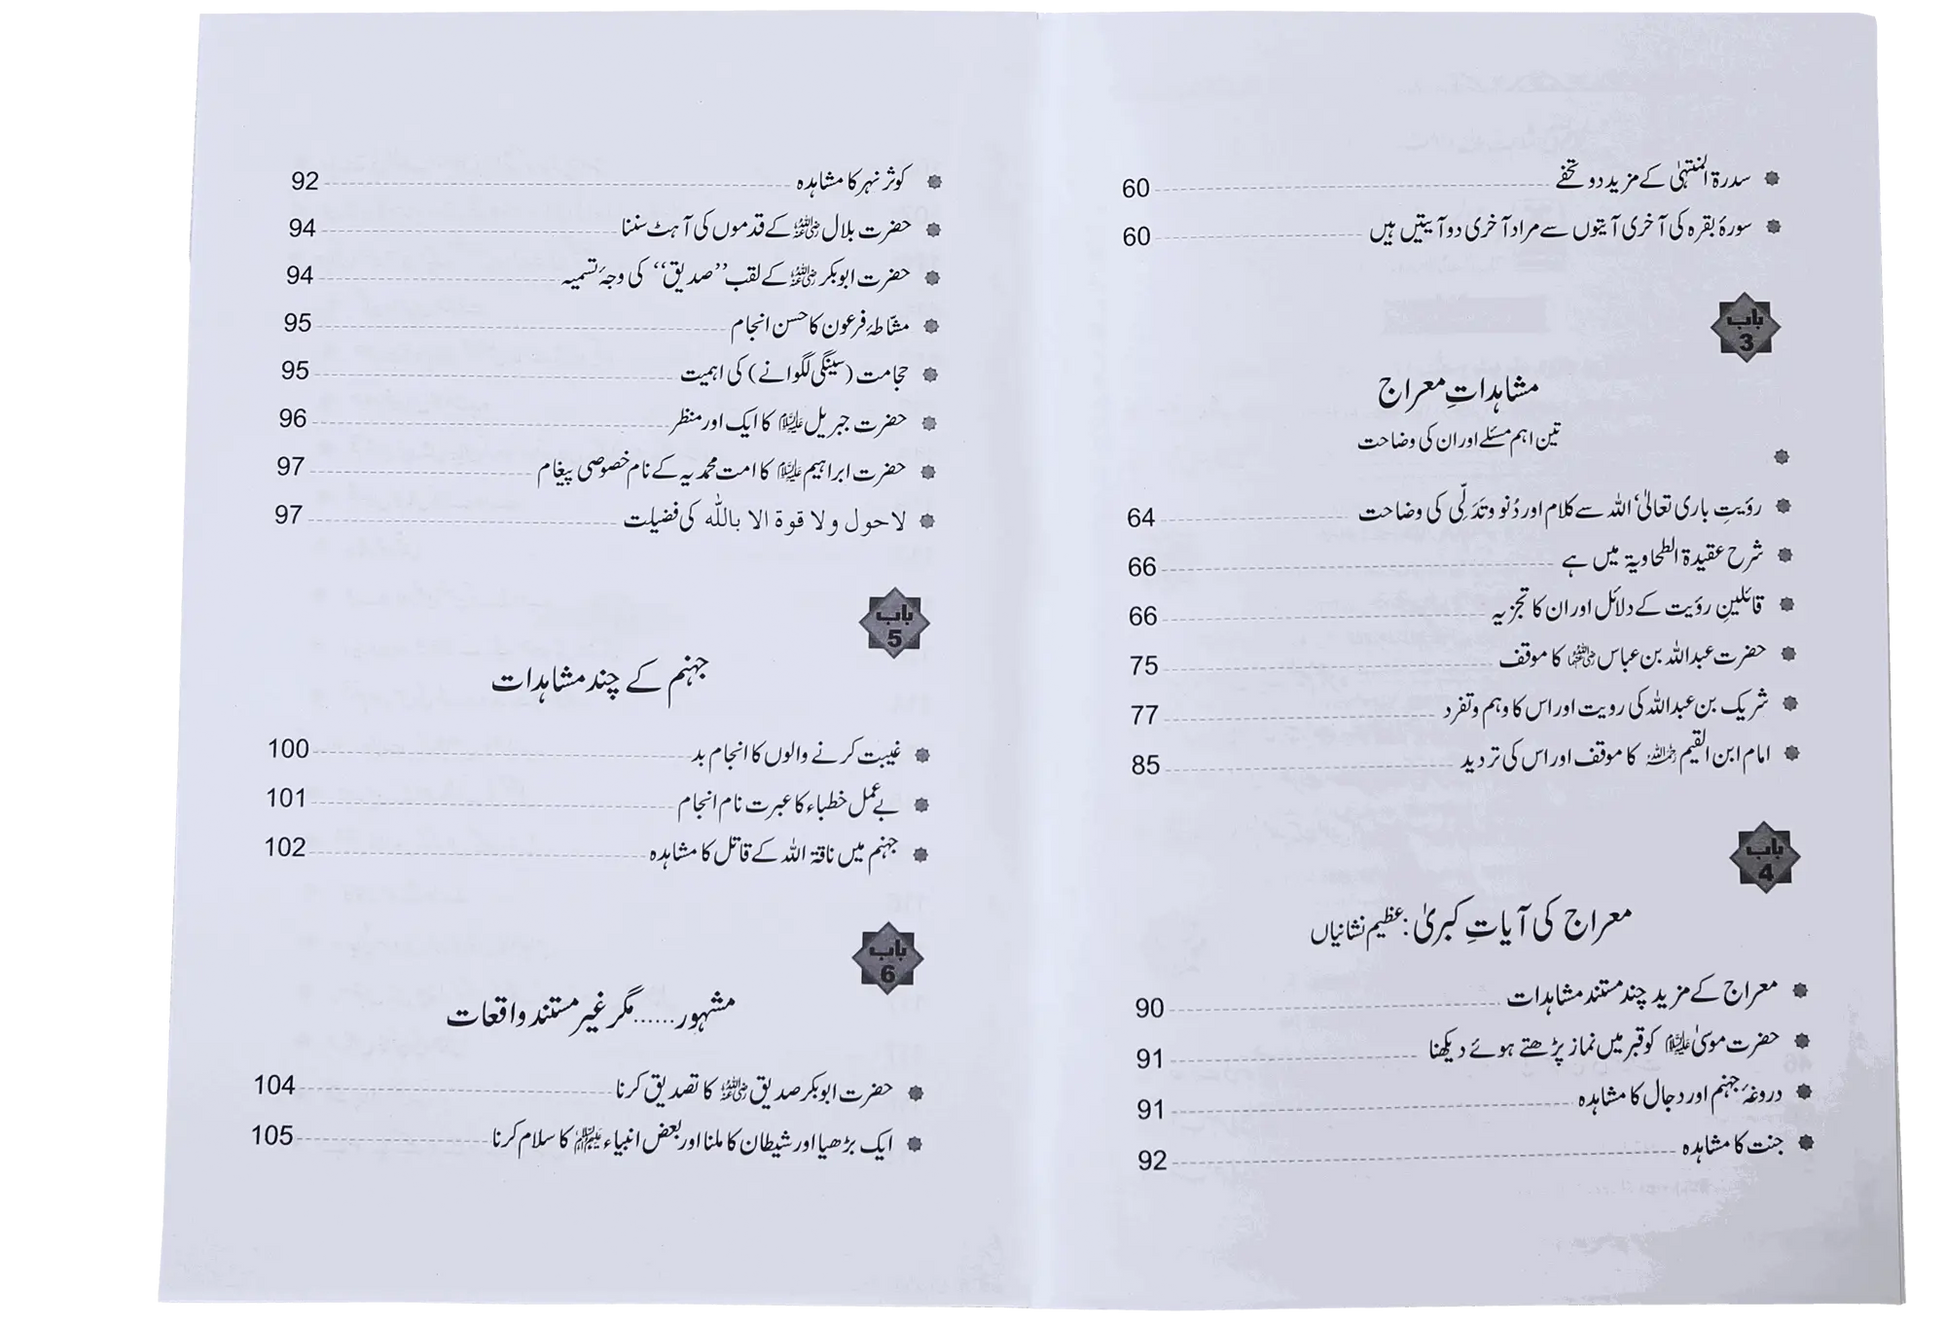 سدرۃ المنتہیٰ کے مزید دو تحفے 60
سورۂ بقرہ کی آخری آیتوں سے مراد آخری دو آیتیں ہیں 60
باب 3
مشاہداتِ معراج
تین اہم مسئلے اور ان کی وضاحت
رؤیتِ باری تعالیٰ، اللہ سے کلام اور دُنو وتَدَلّی کی وضاحت 64
شرح عقیدۃ الطحاویۃ میں ہے 66
قائلینِ رؤیت کے دلائل اور ان کا تجزیہ 66
حضرت عبداللہ بن عباس رضی اللہ عنہما کا موقف 75
شریک بن عبداللہ کی رویت اور اس کا وہم وتفرد 77
امام ابن القیم رحمہ اللہ کا موقف اور اس کی تردید 85
باب 4
معراج کی آیاتِ کبریٰ: عظیم نشانیاں
معراج کے مزید چند مستند مشاہدات 90
حضرت موسیٰ علیہ السلام کو قبر میں نماز پڑھتے ہوئے دیکھنا 91
دروغۂ جہنم اور دجال کا مشاہدہ 91
جنت کا مشاہدہ 92
کوثر نہر کا مشاہدہ 92
حضرت بلال رضی اللہ عنہ کے قدموں کی آہٹ سننا 94
حضرت ابوبکر رضی اللہ عنہ کے لقب ’’صدیق‘‘ کی وجۂ تسمیہ 94
مشّاطۂ فرعون کا حسن انجام 95
حجامت (سینگی لگوانے) کی اہمیت 95
حضرت جبریل علیہ السلام کا ایک اور منظر 96
حضرت ابراہیم علیہ السلام کا امت محمدیہ کے نام خصوصی پیغام 97
لاحول ولا قوۃ الا باللہ کی فضیلت 97
باب 5
جہنم کے چند مشاہدات
غیبت کرنے والوں کا انجام بد 100
بے عمل خطباء کا عبرت نام انجام 101
جہنم میں ناقۃ اللہ کے قاتل کا مشاہدہ 102
باب 6
مشہور......مگر غیر مستند واقعات
حضرت ابوبکر صدیق رضی اللہ عنہ کا تصدیق کرنا 104
ایک بڑھیا اور شیطان کا ملنا اور بعض انبیاء علیہم السلام کا سلام کرنا 105